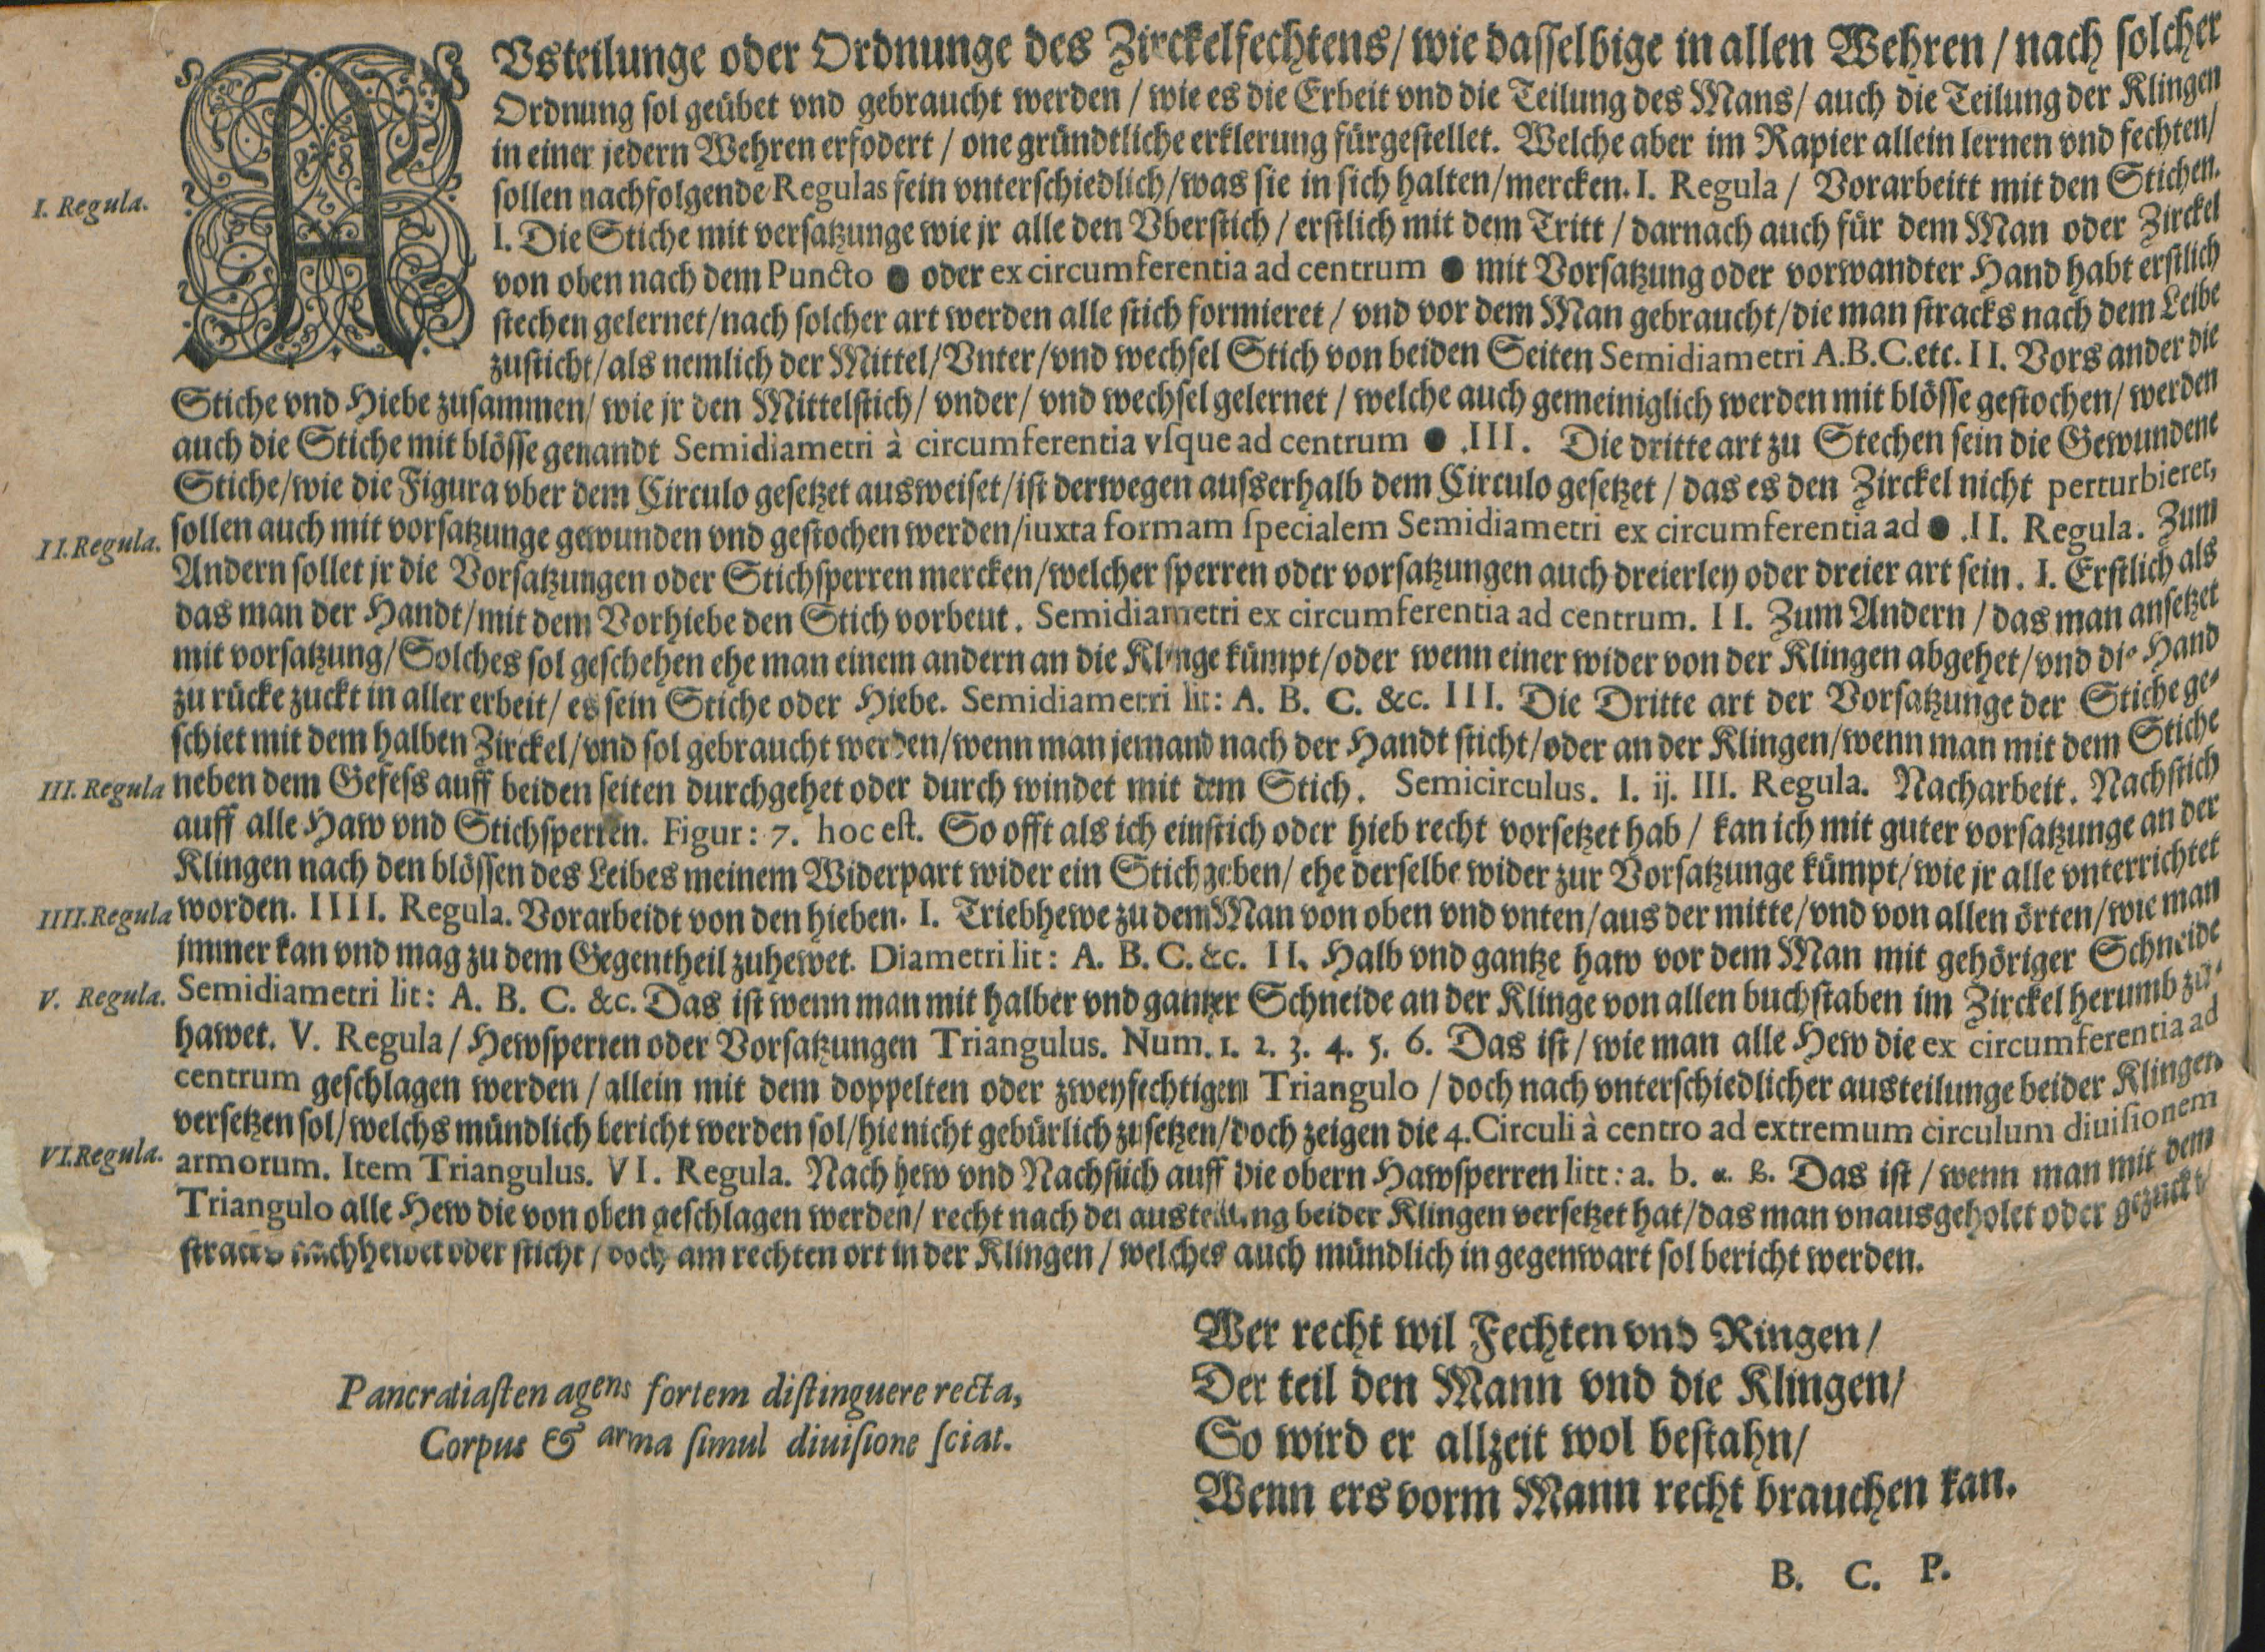 AVsteilunge oder Ordnunge des Zirckelfechtens/ wie dasselbige in allen Wehren / nach solcher
Ordnung sol geübet vnd gebraucht werden / wie es die Erbeit vnd die Teilung des Mans/ auch die Teilung der Klingen
in einer jedern Wehren erfodert / one gründtliche erklerung fürgestellet. Welche aber im Rapier allein lernen vnd fechten/
I. Regula.
sollen nachfolgende Regulas fein vnterschiedlich/was sie in sich halten/mercken. I. Regula / Vorarbeitt mit den Stichen.
I. Die Stiche mit versatzunge wie jr alle den Vberstich / erstlich mit dem Tritt / darnach auch für dem Man oder Zirckel
von oben nach dem Puncto ● oder ex circumferentia ad centrum ● mit Vorsatzung oder vorwandter Hand habt erstlich
stechen gelernet/nach solcher art werden alle stich formieret / vnd vor dem Man gebraucht/die man stracks nach dem Leibe
zusticht/als nemlich der Mittel/Vnter/vnd wechsel Stich von beiden Seiten Semidiametri A.B.C.etc. II. Vors ander die
Stiche vnd Hiebe zusammen/ wie jr den Mittelstich/ vnder/ vnd wechsel gelernet / welche auch gemeiniglich werden mit blösse gestochen/ werden
auch die Stiche mit blösse genandt Semidiametri à circumferentia vsque ad centrum ● .III. Die dritte art zu Stechen sein die Gewundene
Stiche/wie die Figura vber dem Circulo gesetzet ausweiset/ist derwegen ausserhalb dem Circulo gesetzet / das es den Zirckel nicht perturbieret,
II. Regula.
sollen auch mit vorsatzunge gewunden vnd gestochen werden/iuxta formam specialem Semidiametri ex circumferentia ad ● .II. Regula. Zum
Andern sollet jr die Vorsatzungen oder Stichsperren mercken/welcher sperren oder vorsatzungen auch dreierley oder dreier art sein. I. Erstlich als
das man der Handt/mit dem Vorhiebe den Stich vorbeut. Semidiametri ex circumferentia ad centrum. II. Zum Andern / das man ansetzet
mit vorsatzung/Solches sol geschehen ehe man einem andern an die Klinge kümpt/oder wenn einer wider von der Klingen abgehet/vnd die Hand
zu rücke zuckt in aller erbeit/ es sein Stiche oder Hiebe. Semidiametri lit: A. B. C. &c. III. Die Dritte art der Vorsatzunge der Stiche ge-
schiet mit dem halben Zirckel/vnd sol gebraucht werden/wenn man jemand nach der Handt sticht/oder an der Klingen/wenn man mit dem Stiche
III. Regula
neben dem Gefess auff beiden seiten durchgehet oder durch windet mit dem Stich. Semicirculus. I. ij. III. Regula. Nacharbeit. Nachstich
auff alle Haw vnd Stichsperren. Figur: 7. hoc est. So offt als ich ein stich oder hieb recht vorsetzet hab / kan ich mit guter vorsatzunge an der
Klingen nach den blössen des Leibes meinem Widerpart wider ein Stich geben/ ehe derselbe wider zur Vorsatzunge kümpt/wie jr alle vnterrichtet
IIII. Regula
worden. IIII. Regula. Vorarbeidt von den hieben. I. Triebhewe zu dem Man von oben vnd vnten/aus der mitte/vnd von allen örten/wie man
jmmer kan vnd mag zu dem Gegentheil zuhewet. Diametri lit: A. B. C. &c. II. Halb vnd gantze haw vor dem Man mit gehöriger Schneide
V. Regula.
Semidiametri lit: A. B. C. &c. Das ist wenn man mit halber vnd gantzer Schneide an der Klinge von allen buchstaben im Zirckel herumb zu-
hawet. V. Regula/ Hewsperren oder Vorsatzungen Triangulus. Num. 1. 2. 3. 4. 5. 6. Das ist / wie man alle Hew die ex circumferentia ad
centrum geschlagen werden / allein mit dem doppelten oder zweyfechtigem Triangulo / doch nach vnterschiedlicher austeilunge beider Klingen
versetzen sol/welchs mündlich bericht werden sol/hie nicht gebürlich zu setzen/doch zeigen die 4. Circuli à centro ad extremum circulum diuisionem
VI. Regula.
armorum. Item Triangulus. VI. Regula. Nach hew vnd Nachstich auff die obern Hawsperren litt: a. b. α. β. Das ist / wenn man mit dem
Triangulo alle Hew die von oben geschlagen werden/ recht nach der austeilung beider Klingen versetzet hat/das man vnausgeholet oder gezuckt/
stracks nachhewet oder sticht / doch am rechten ort in der Klingen / welches auch mündlich in gegenwart sol bericht werden.
Pancratiasten agens fortem distinguere recta,
Corpus & arma simul diuisione sciat.
Wer recht wil Fechten vnd Ringen/
Der teil den Mann vnd die Klingen/
So wird er allzeit wol bestahn/
Wenn ers vorm Mann recht brauchen kan.
B. C. P.